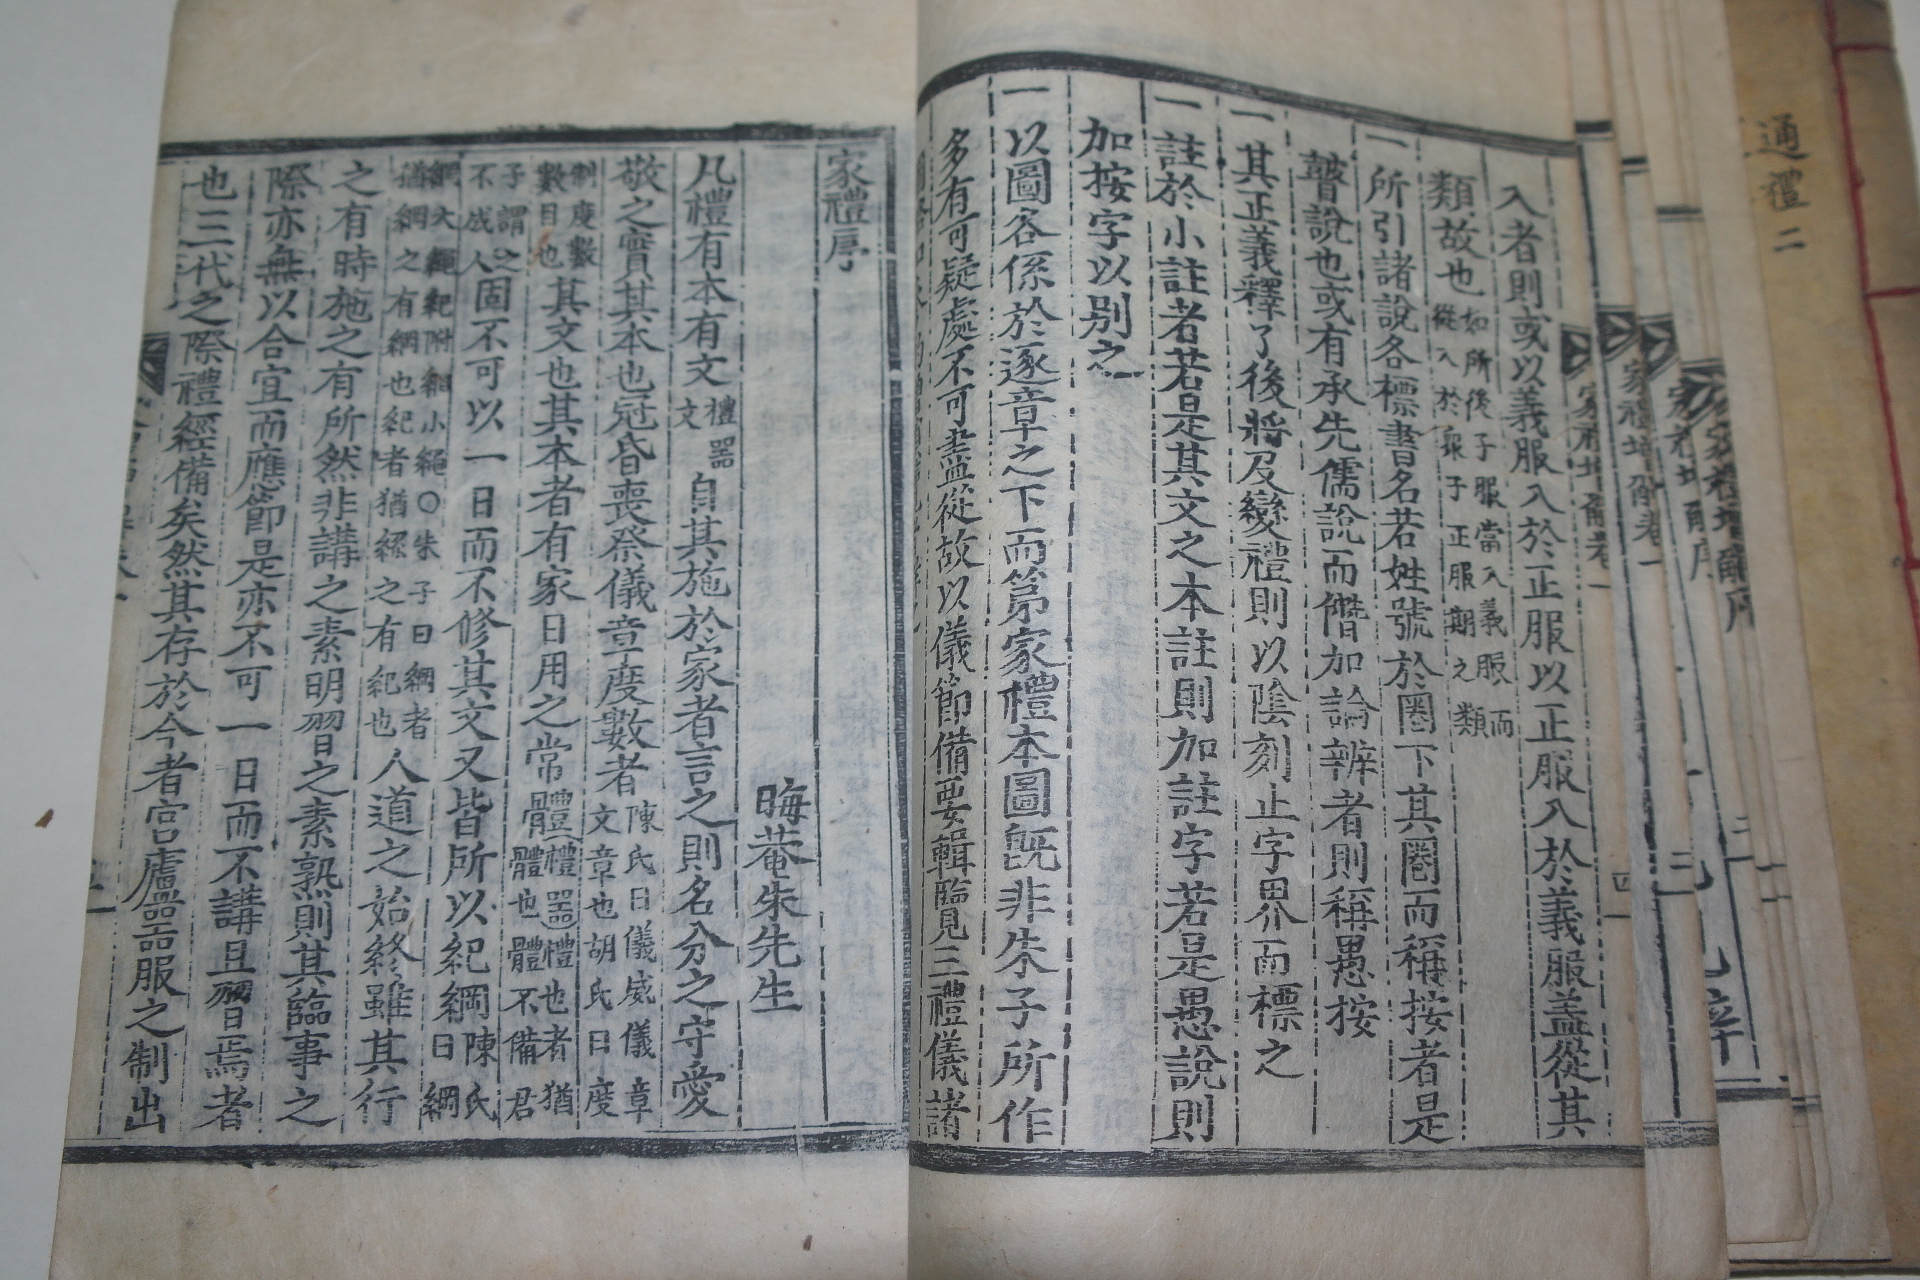 通禮二
入者則或以義服入於正服以正服入於義服盖從其
類故也如所後子服當入義服而從入於衆子正服期之類
一所引諸說各標書名若姓號於圈下其圈而稱按者是
瞽說也或有承先儒說而僭加論辨者則稱愚按
一其正義釋了後將及變禮則以陰刻止字界而標之
一註於小註者若是其文之本註則加註字若是愚說則
加按字以别之
一以圖各係於逐章之下而第家禮本圖旣非朱子所作
多有可疑處不可盡從故以儀節備要輯臨覽三禮儀諸
家禮序
晦菴朱先生
凡禮有本有文禮器文自其施於家者言之則名分之守愛
敬之實其本也冠昏喪祭儀章度數者陳氏曰儀威儀章文章也胡氏曰度
制度數數目也其文也其本者有家日用之常體禮器禮也者猶體也體不備君
子謂之不成人固不可以一日而不修其文又皆所以紀綱陳氏曰綱
綱大繩紀附綱小繩○朱子曰綱者猶網之有綱也紀者猶絲之有紀也人道之始終雖其行
之有時施之有所然非講之素明習之素熟則其臨事之
際亦無以合宜而應節是亦不可一日而不講且習焉者
也三代之際禮經備矣然其存於今者宮廬器服之制出